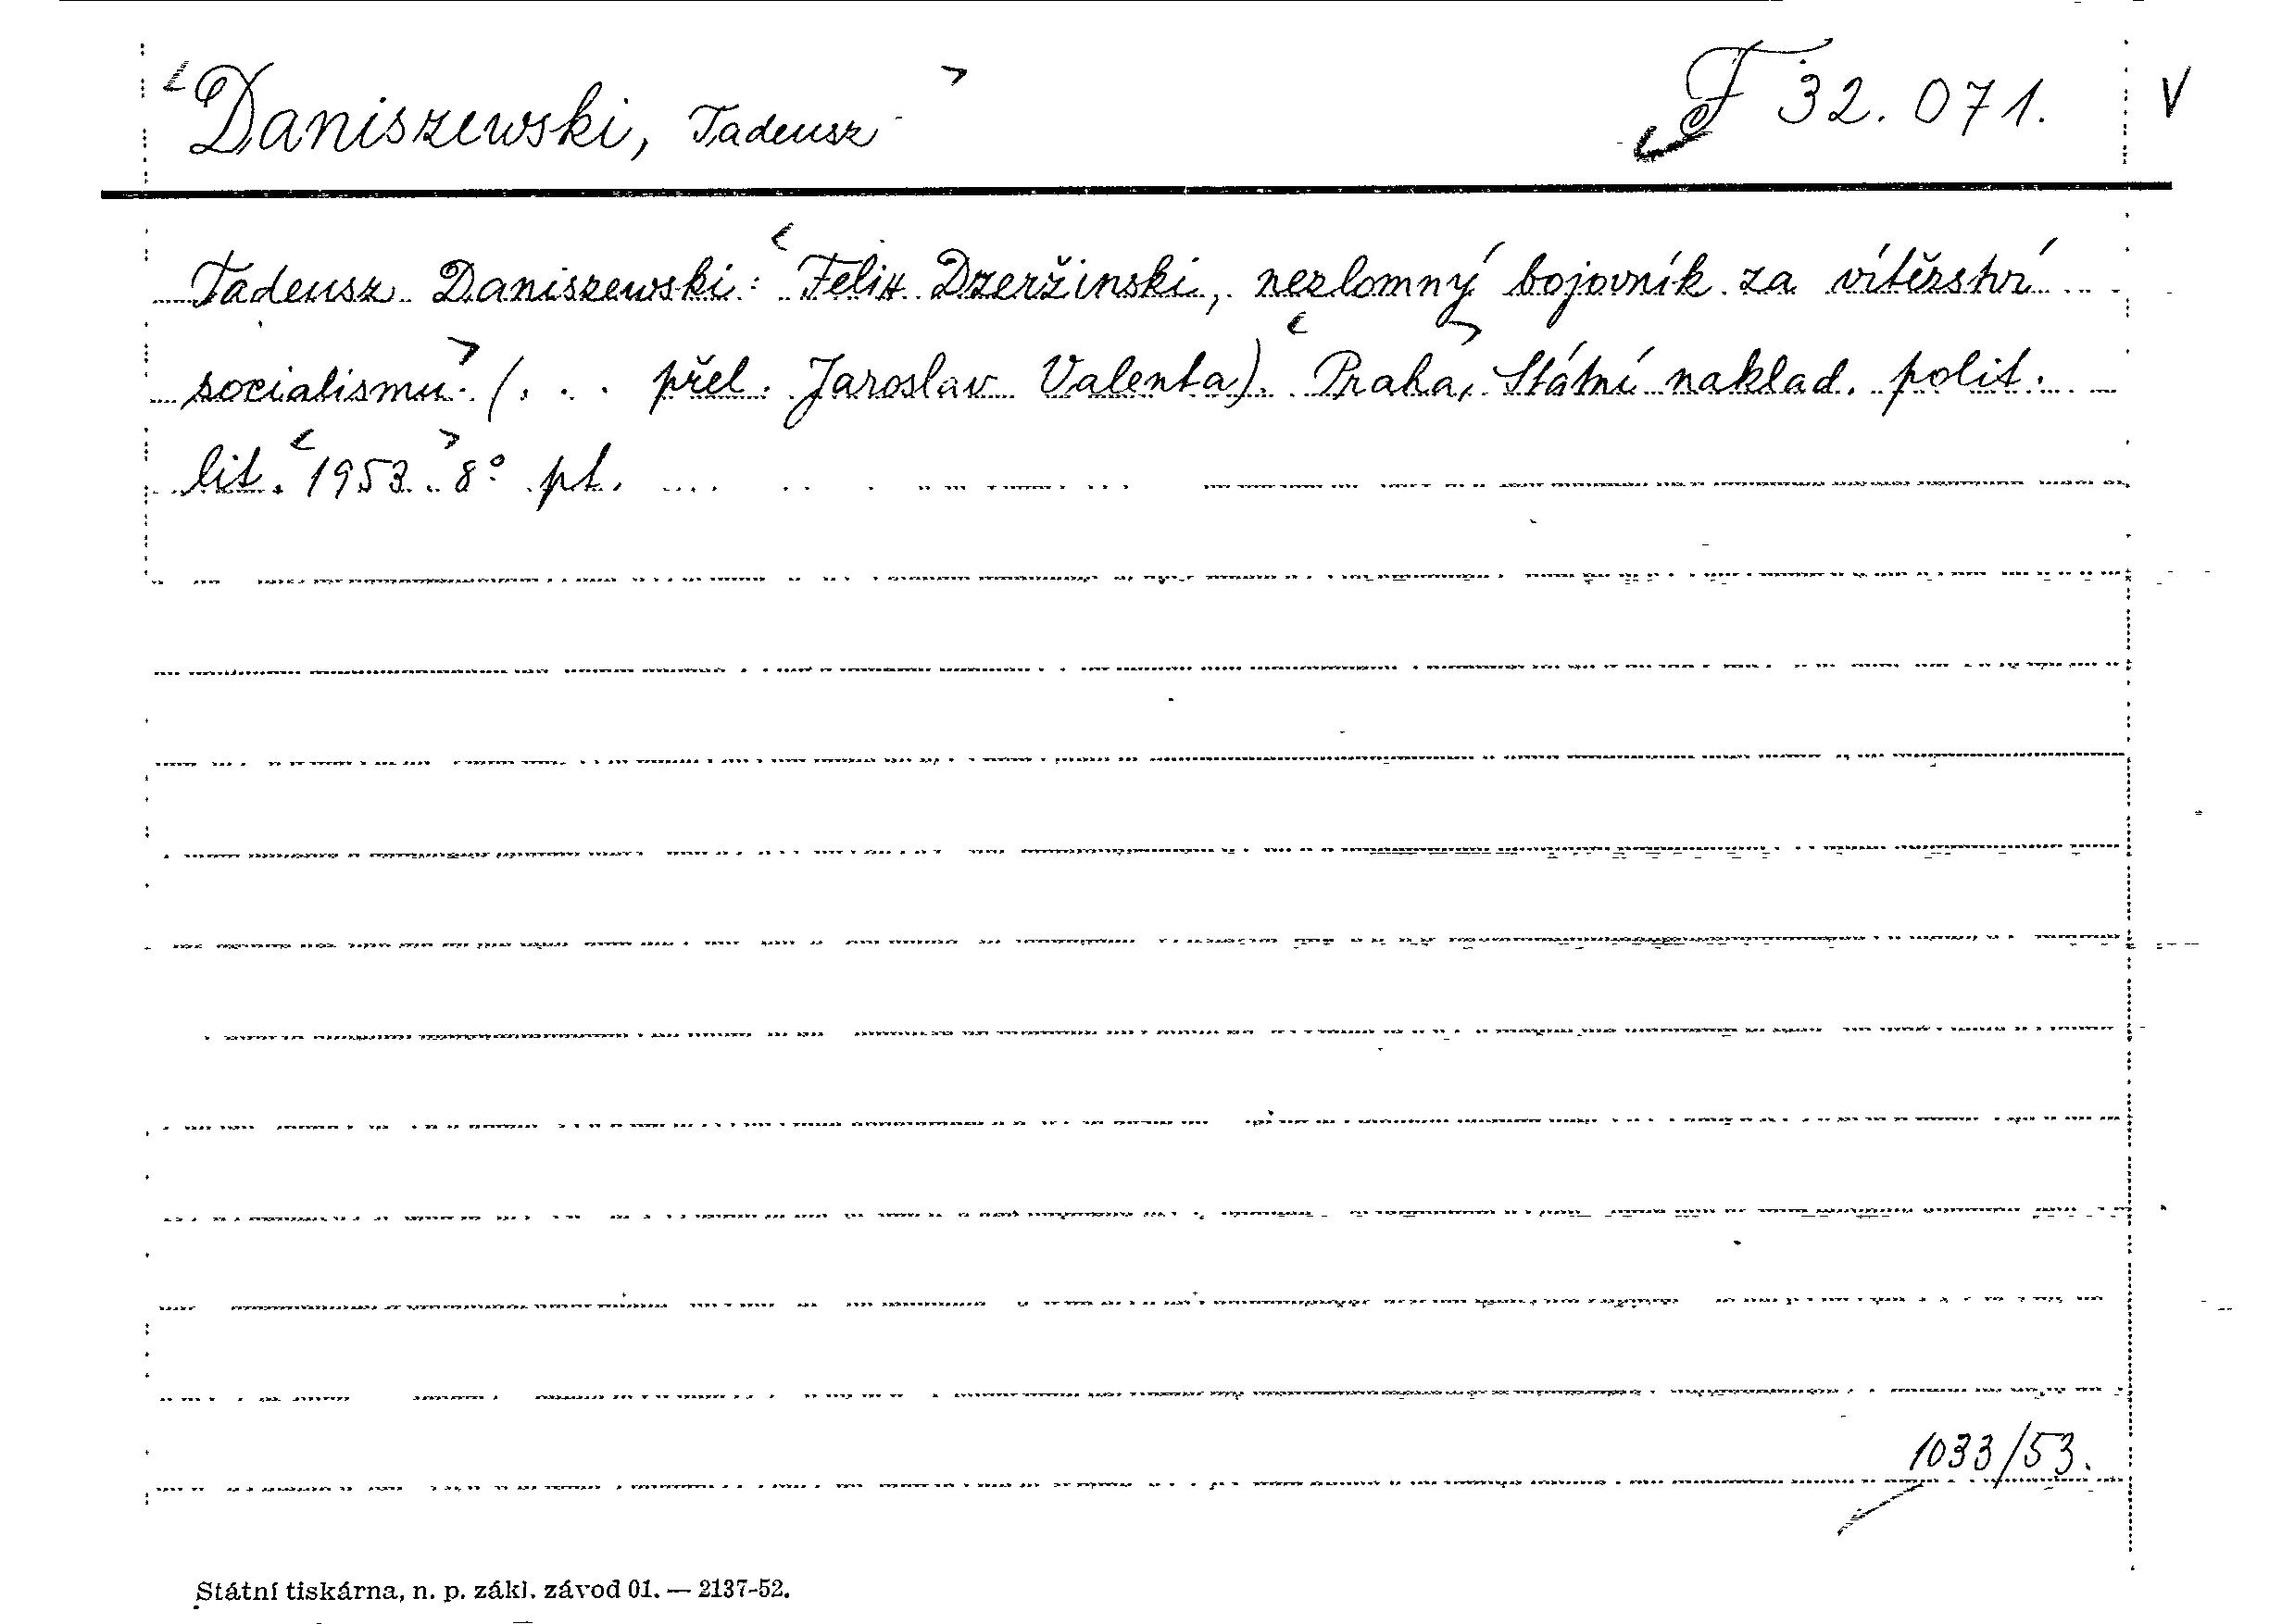 Daniszewski, Tadeusz F 32.071. V
Tadeusz Daniszewski: Felix Dzeržinski, nezlomný bojovník za vítězství
socialismu. (. . . přel. Jaroslav Valenta). Praha, Státní naklad. polit.
lit. 1953. 8° pt.
1033/53.
Státní tiskárna, n. p. zákl. závod 01. — 2137-52.